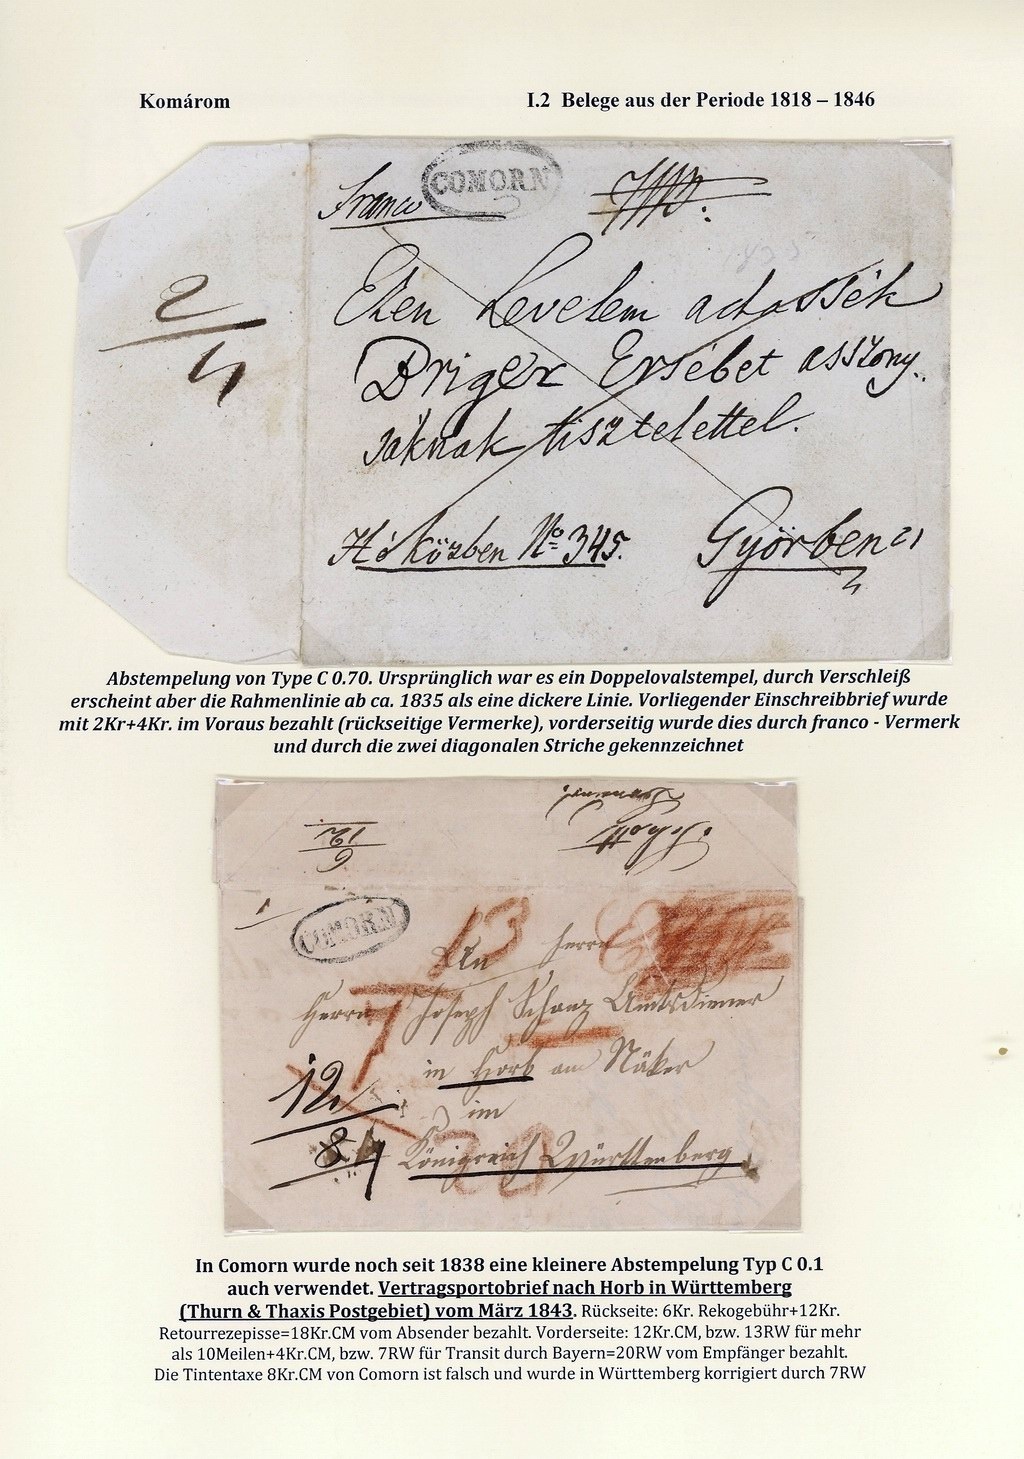 Komárom
I.2 Belege aus der Periode 1818 – 1846
COMORN
Franco
2
4
Ezen Levelem adassék
Driger Ersébet asszony.
jáknak tisztelettel.
Hóközben No 345.
Györben
Abstempelung von Type C 0.70. Ursprünglich war es ein Doppelovalstempel, durch Verschleiß
erscheint aber die Rahmenlinie ab ca. 1835 als eine dickere Linie. Vorliegender Einschreibbrief wurde
mit 2Kr+4Kr. im Voraus bezahlt (rückseitige Vermerke), vorderseitig wurde dies durch franco - Vermerk
und durch die zwei diagonalen Striche gekennzeichnet
12
6
COMORN
13
An Herrn
Herrn Joseph Schanz Amtsdiener
7
in Horb am Näker
12
im
8
Königreich Württemberg
20
In Comorn wurde noch seit 1838 eine kleinere Abstempelung Typ C 0.1
auch verwendet. Vertragsportobrief nach Horb in Württemberg
(Thurn & Thaxis Postgebiet) vom März 1843. Rückseite: 6Kr. Rekogebühr+12Kr.
Retourrezepisse=18Kr.CM vom Absender bezahlt. Vorderseite: 12Kr.CM, bzw. 13RW für mehr
als 10Meilen+4Kr.CM, bzw. 7RW für Transit durch Bayern=20RW vom Empfänger bezahlt.
Die Tintentaxe 8Kr.CM von Comorn ist falsch und wurde in Württemberg korrigiert durch 7RW